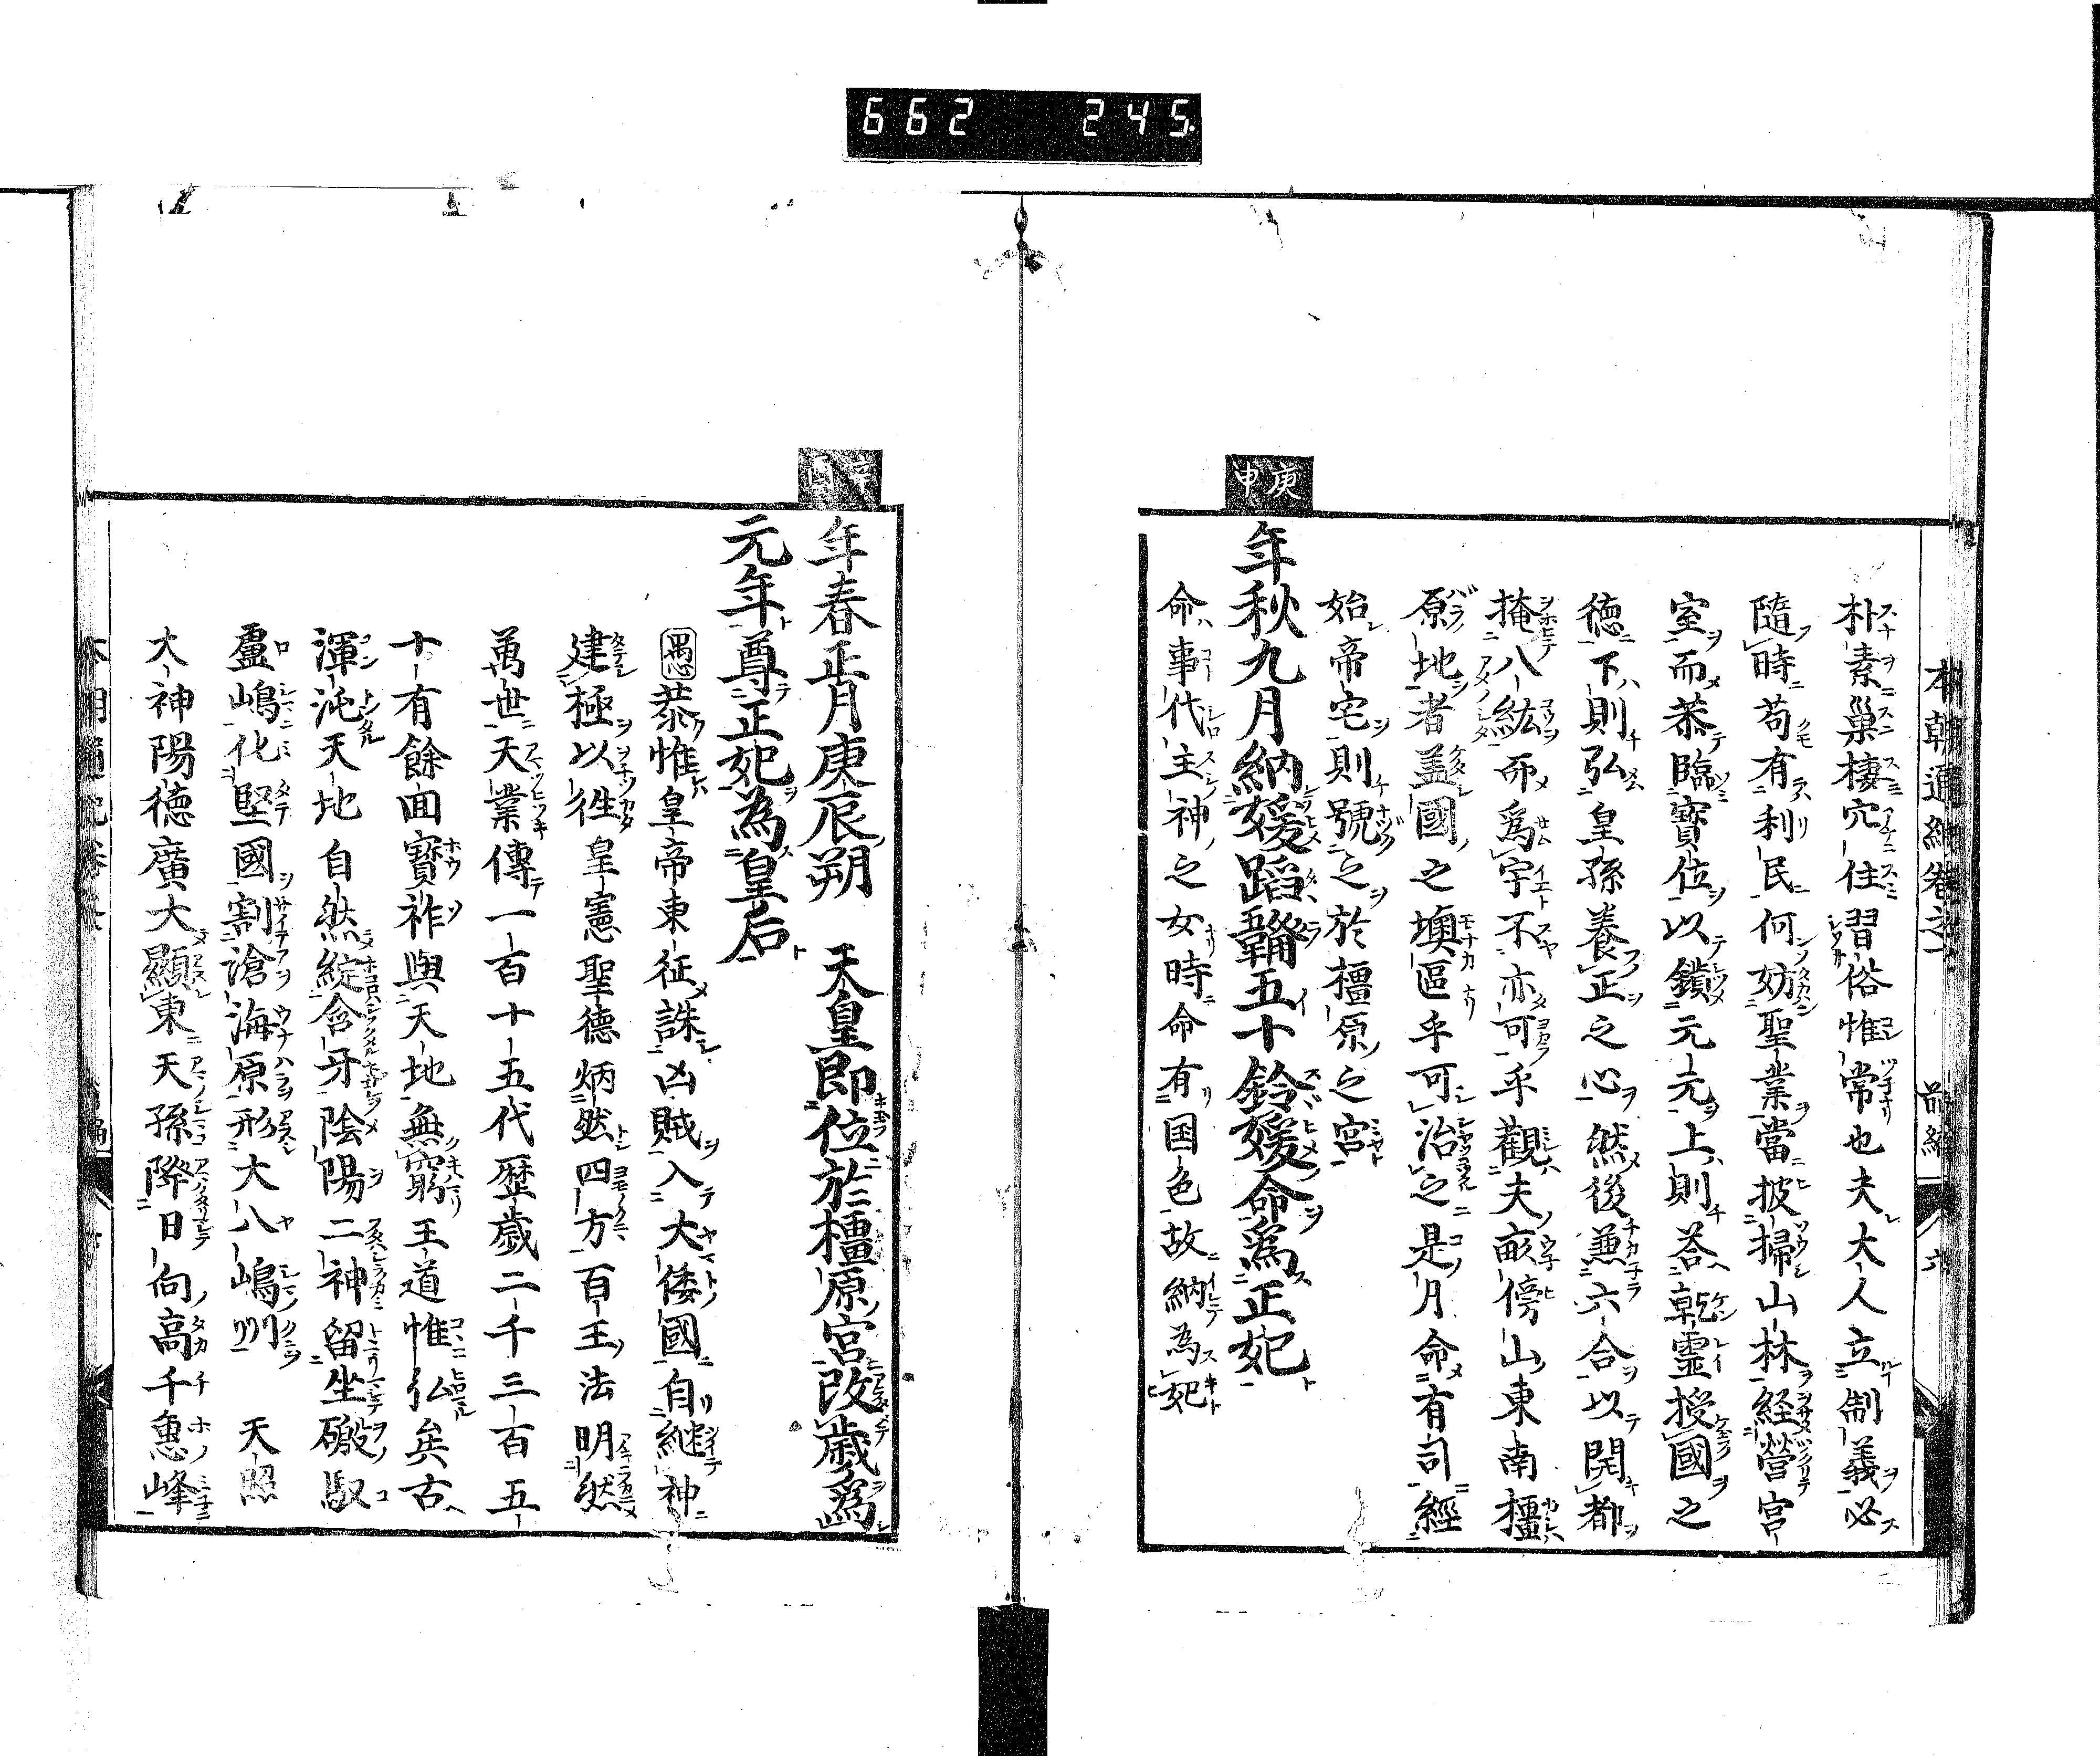 662 245
本朝通紀卷之一 前編 六
朴素巢棲穴住習俗惟常也夫大人立制義必
隨時苟有利民何妨聖業當披掃山林経營宮
室而恭臨寶位以鎮元元上則荅乾靈授國之
德下則弘皇孫養正之心然後兼六合以開都
掩八紘而爲宇不亦可乎觀夫畝傍山東南橿
原地者盖國之墺區乎可治之是月命有司經
始帝宅則號之於橿原之宮
庚申
年秋九月納媛蹈鞴五十鈴媛命爲正妃
命事代主神之女時命有国色故納為妃
辛酉
年春正月庚辰朔 天皇即位於橿原宮改歳爲
元年尊正妃為皇后
愚 恭惟皇帝東征誅凶賊入大倭國自継神
建極以徃皇憲聖德炳然四方百王法明然
萬世天業傳一百十五代歴歳二千三百五
十有餘囬寶祚與天地無窮王道惟弘矣古
渾沌天地自然綻含牙陰陽二神留坐磤馭
盧嶋化堅國割滄海原形大八嶋 天照
大神陽德廣大顯東天孫降日向高千惠峰